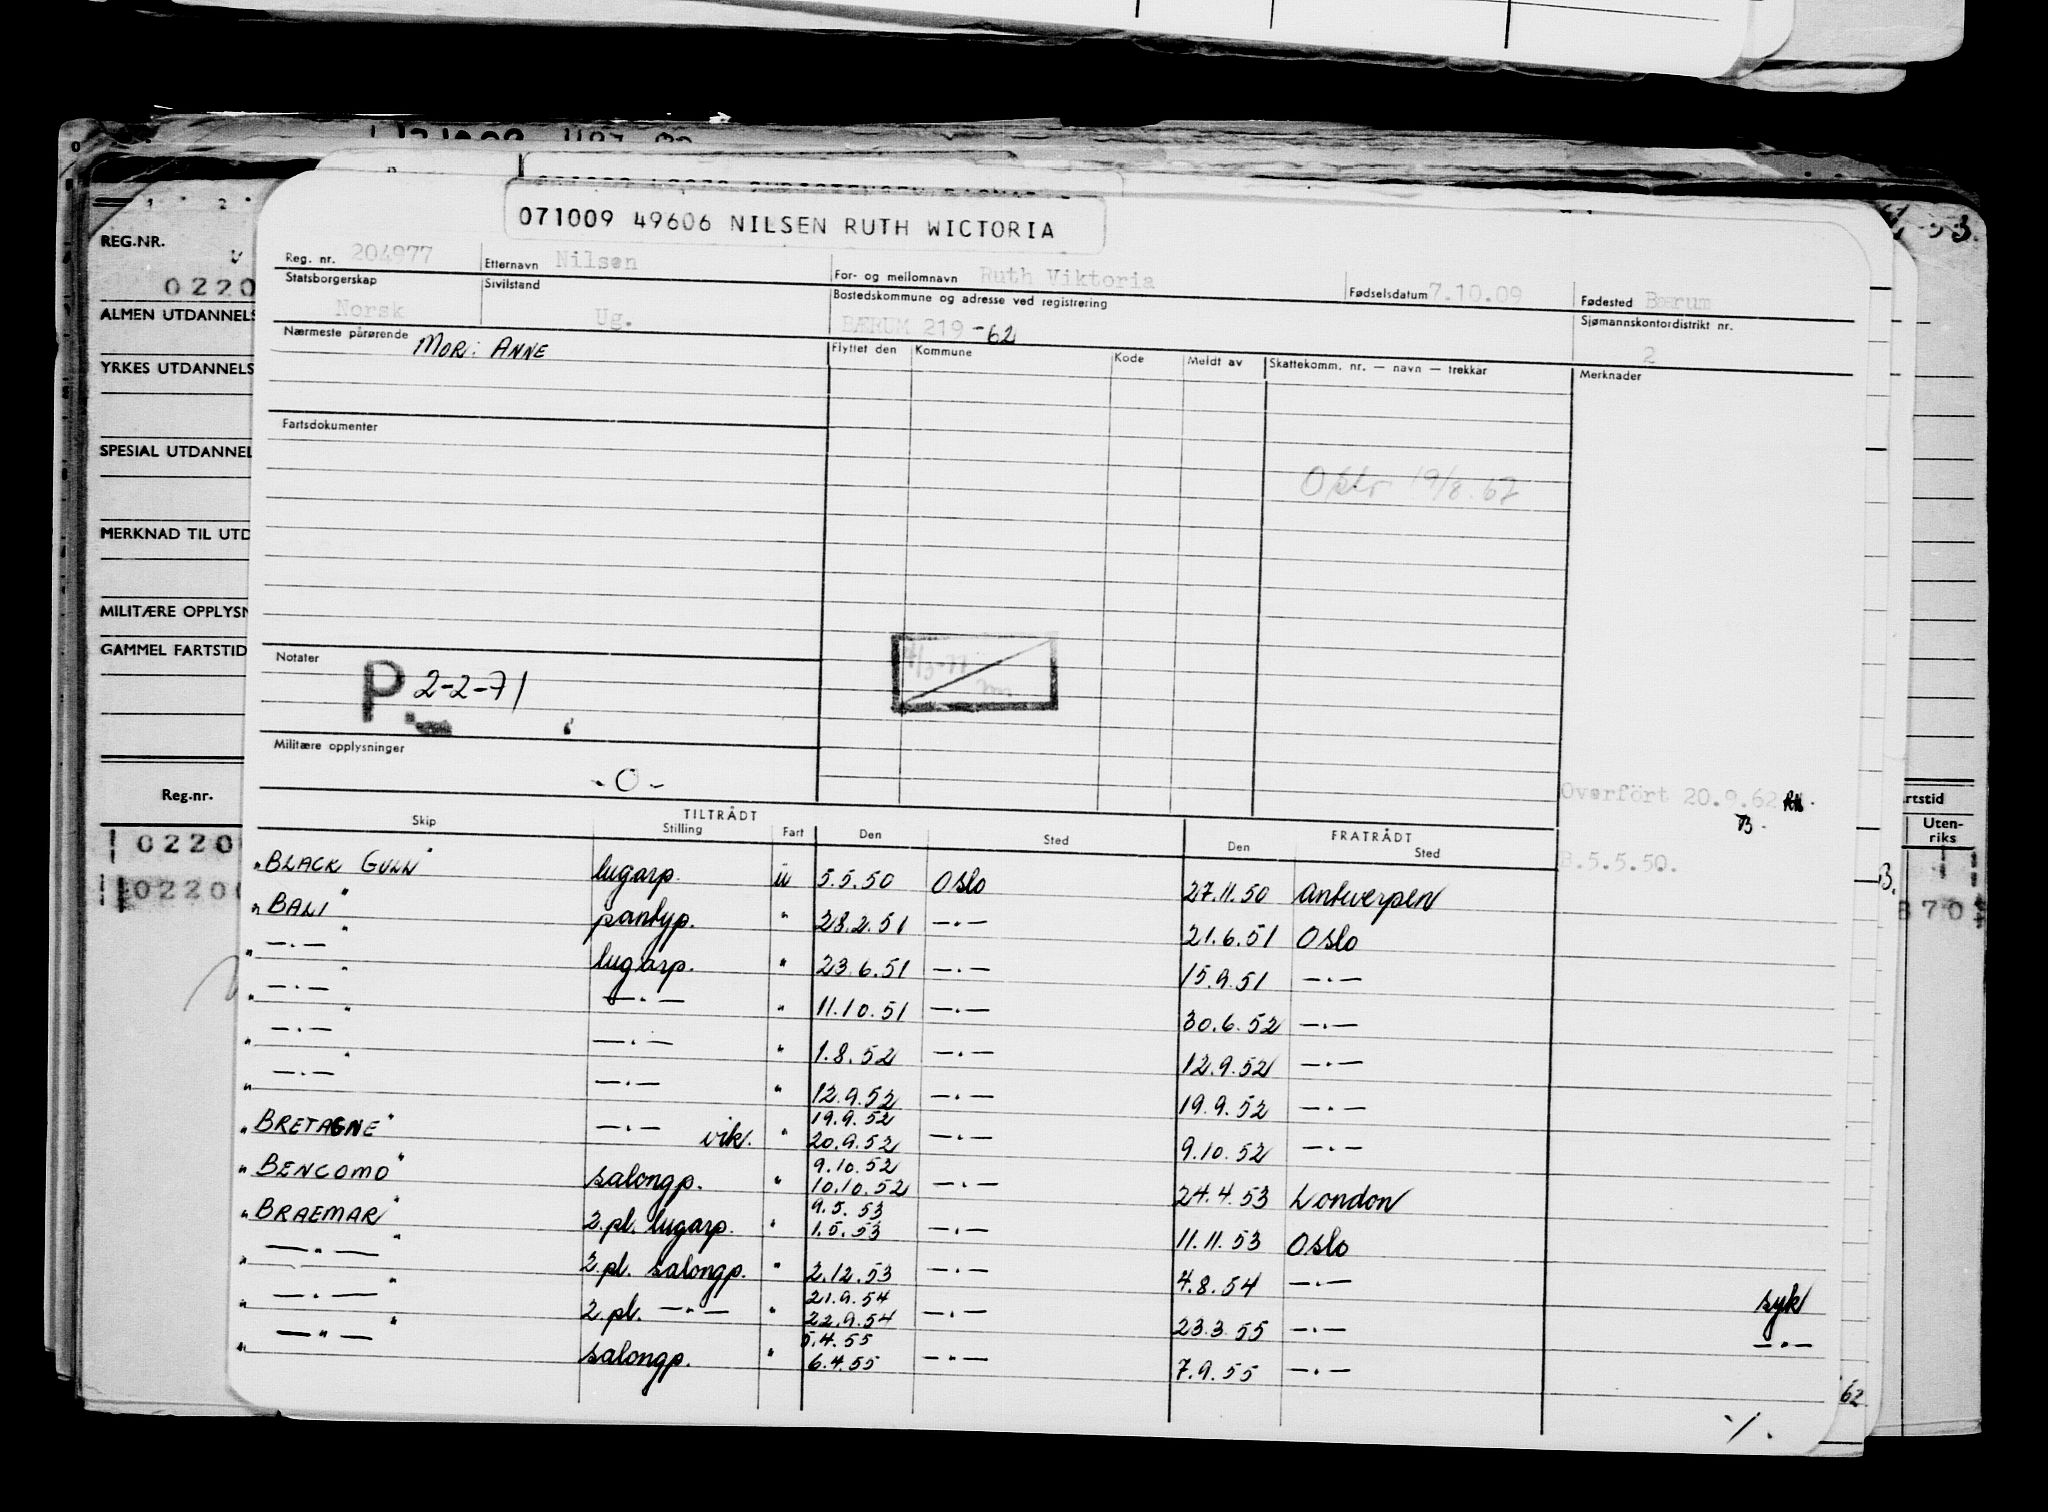 071009 49606 NILSEN RUTH WICTORIA
Reg. nr. 204977 Etternavn Nilsen For- og mellomnavn Ruth Viktoria Fødselsdatum 7.10.09 Fødested Bærum
Statsborgerskap Norsk Sivilstand Ug. Bostedskommune og adresse ved registrering BÆRUM 219 -62 Sjømannskontordistrikt nr. 2
Nærmeste pårørende MOR: ANNE Flyttet den Kommune Kode Meldt av Skattekomm. nr. — navn — trekkår Merknader
Fartsdokumenter
Oslo 19/8.62
Notater
P 2-2-71
Militære opplysninger
- O -
Overfört 20.9.62
B.5.5.50.
TILTRÅDT FRATRÅDT
Skip Stilling Fart Den Sted Den Sted
"BLACK GULL" lugarp. u 5.5.50 Oslo 27.11.50 Antwerpen
"BALI" pantryp. " 28.2.51 —.— 21.6.51 Oslo
" —.— " lugarp. " 23.6.51 —.— 15.9.51 —.—
" —.— " —.— " 11.10.51 —.— 30.6.52 —.—
" —.— " —.— " 1.8.52 —.— 12.9.52 —.—
" —.— " —.— " 12.9.52 —.— 19.9.52 —.—
19.9.52
"BRETAGNE" —.— vik. " 20.9.52 —.— 9.10.52 —.—
9.10.52
"BENCOMO" salongp. " 10.10.52 —.— 24.4.53 London
9.5.53
"BRAEMAR" 2.pl. lugarp. " 1.5.53 —.— 11.11.53 Oslo
" —"— " 2.pl. salongp. " 2.12.53 —.— 4.8.54 —.— syk
21.9.54
" —.— " 2.pl. —"— " 22.9.54 —.— 23.3.55 —.— —.—
5.4.55
" —"— " salongp. " 6.4.55 —"— 7.9.55 —.—
·/.
REG.NR.
0220
ALMEN UTDANNELS
YRKES UTDANNELS
SPESIAL UTDANNEL
MERKNAD TIL UTD
MILITÆRE OPPLYSN
GAMMEL FARTSTID
Reg.nr.
0220
02200
rtstid
Uten-
riks
B.
870
62